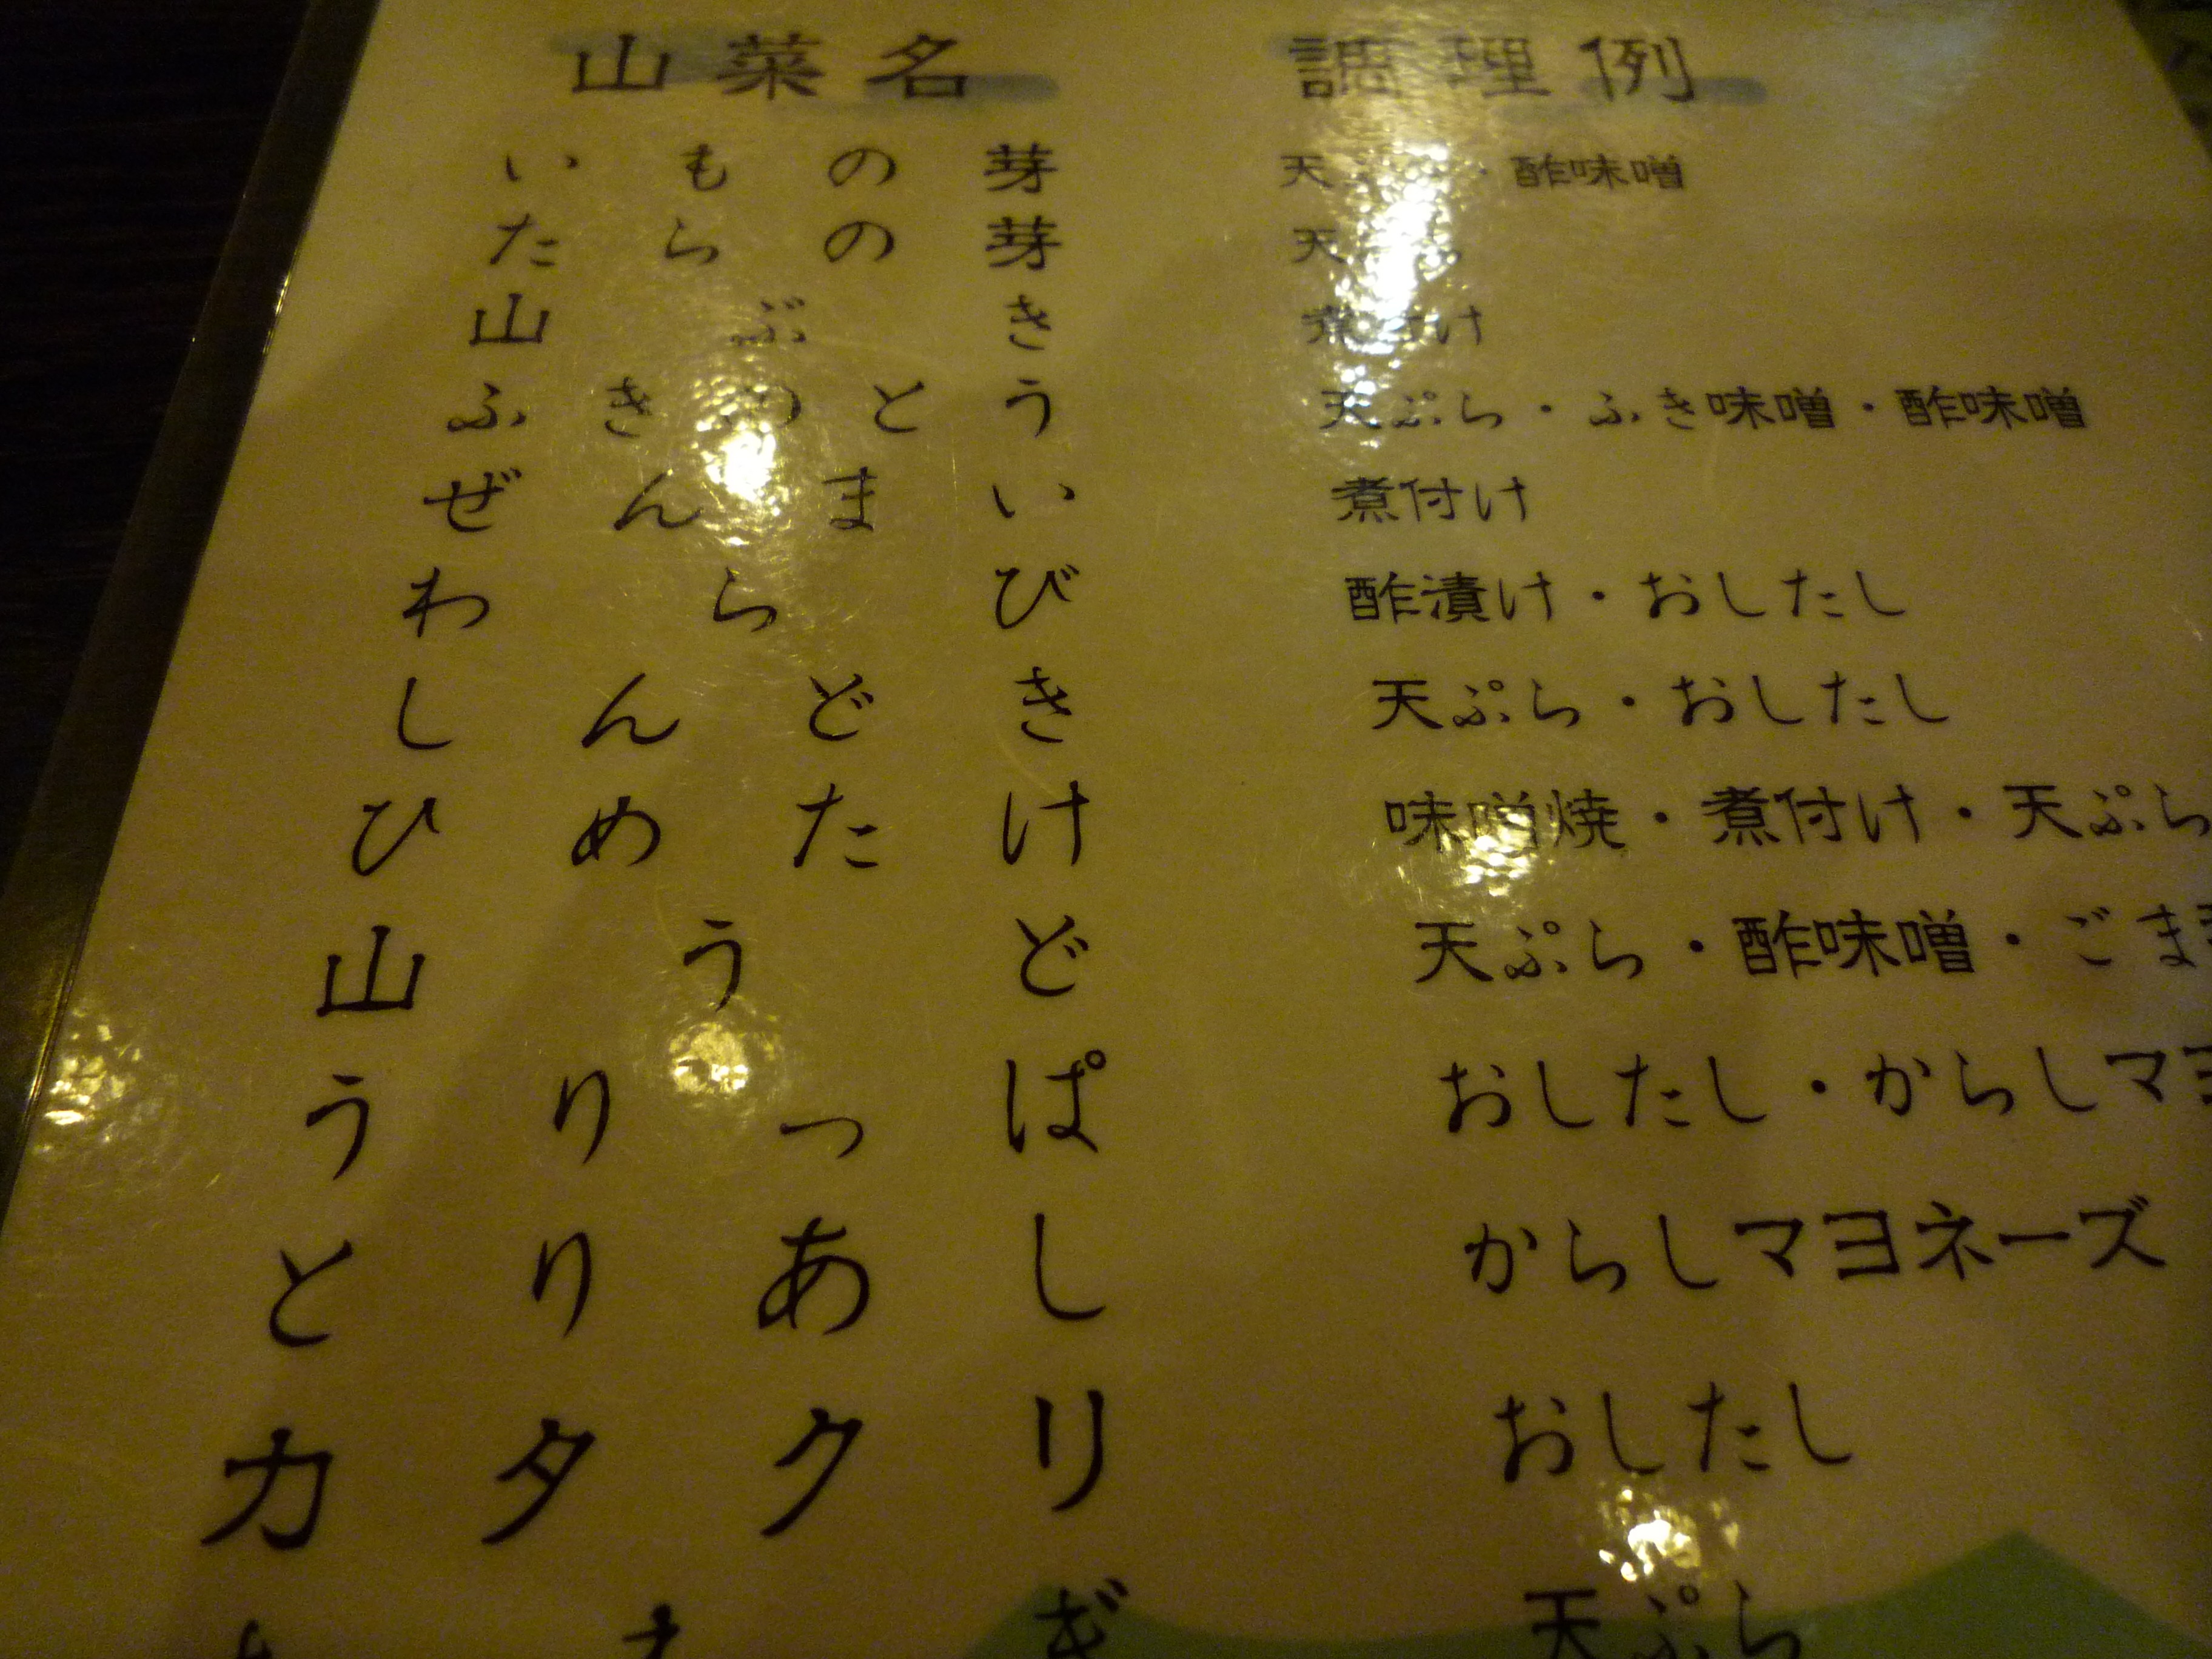 山菜名 調理例
いもの芽 天ぷら・酢味噌
たらの芽 天ぷら
山ぶき 煮付け
ふきのとう 天ぷら・ふき味噌・酢味噌
ぜんまい 煮付け
わらび 酢漬け・おしたし
しんどき 天ぷら・おしたし
ひめたけ 味噌焼・煮付け・天ぷら
山うど 天ぷら・酢味噌・ごま
うりっぱ おしたし・からしマヨ
とりあし からしマヨネーズ
カタクリ おしたし
ぎ 天ぷら